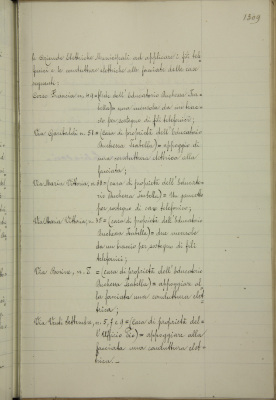 1309
le Aziende Elettriche Municipali ad applicare i fili tele-
fonici o le condutture elettriche alle facciate delle case
seguenti:
Corso Francia n. 9 = (Sede dell'Educatorio Duchessa Isa-
bella) una mensola da un braccio
per sostegno di fili telefonici;
Via Garibaldi n. 51 = (casa di proprietà dell'Educatorio
Duchessa Isabella) = appoggio di
una conduttura elettrica alla
facciata;
Via Maria Vittoria, n. = (casa di proprietà dell'Educato-
rio Duchessa Isabella) = Un
per sostegno di cavi telefonici;
Via Maria Vittoria, n. = (casa di proprietà dell'Educatorio
Duchessa Isabella) = due mensole
da un braccio per sostegno di fili
telefonici;
Via n. 2 = (casa di proprietà dell'Educatorio
Duchessa Isabella) = appoggiare al
la facciata una conduttura elet
trica;
Via Venti Settembre, n. 5, 7 e 9 = (casa di proprietà del-
l'Ufficio Pio) = appoggiare alla
facciata una conduttura elet-
trica. —